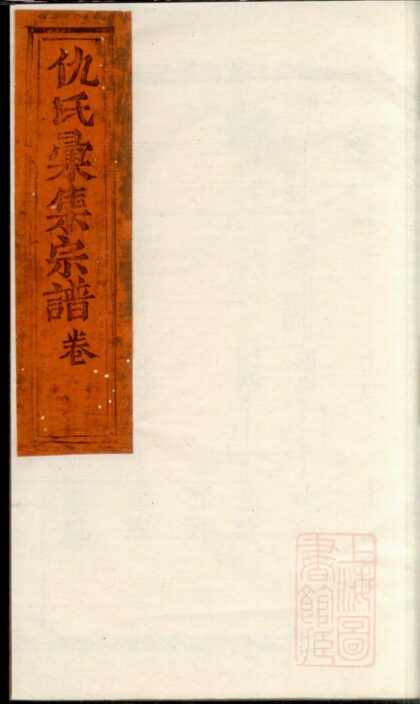 仇氏彙集宗譜
卷
上海圖
書館藏